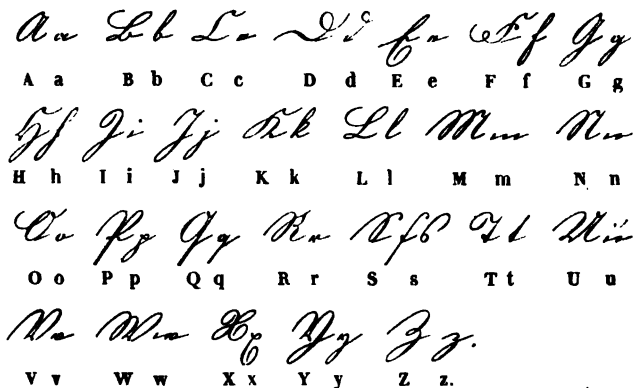 A a B b C c D d E e F f G g
A a B b C c D d E e F f G g
H h I i J j K k L l M m N n
H h I i J j K k L l M m N n
O o P p Q q R r S ſ s T t U u
O o P p Q q R r S s T t U u
V v W w X x Y y Z z.
V v W w X x Y y Z z.